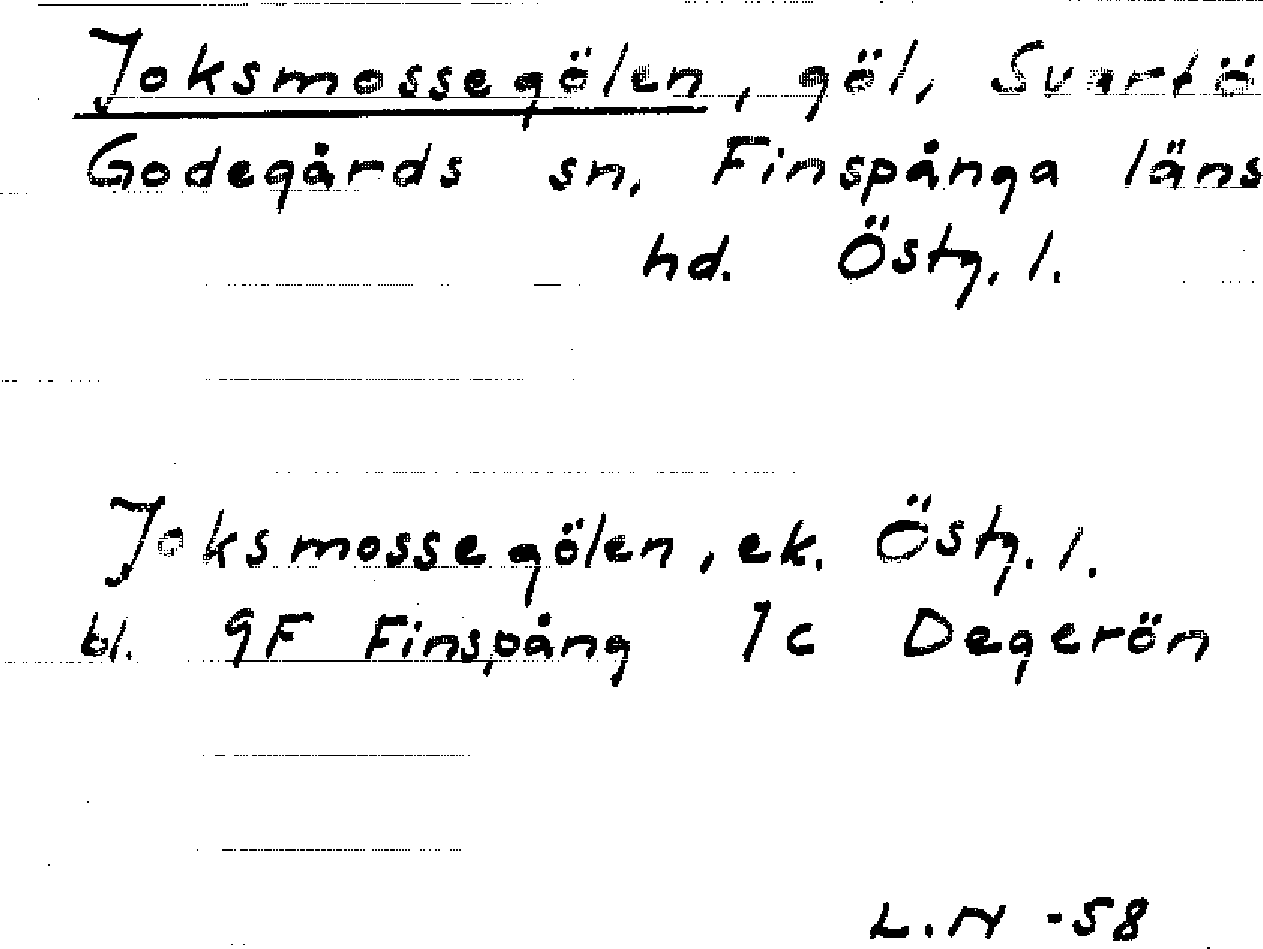 Joksmossegölen, göl, Svartö
Godegårds sn, Finspånga läns
hd. Östg. l.
Joksmossegölen, ek. Östg. l.
bl. 9F Finspång 1c Degerön
L.N -58